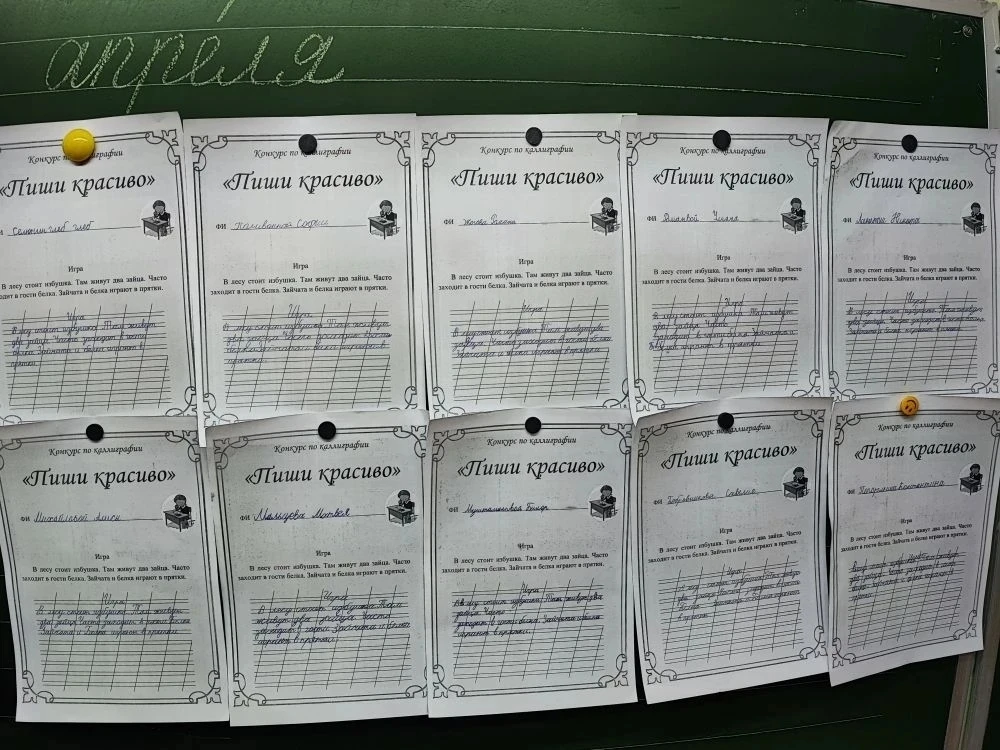 апреля
Конкурс по каллиграфии
«Пиши красиво»
ФИ
Игра
В лесу стоит избушка. Там живут два зайца. Часто
заходит в гости белка. Зайчата и белка играют в прятки.
Игра
В лесу стоит избушка. Там живут
два зайца. Часто заходит в гости
белка. Зайчата и белка играют в
прятки.
Конкурс по каллиграфии
«Пиши красиво»
ФИ
Игра
В лесу стоит избушка. Там живут два зайца. Часто
заходит в гости белка. Зайчата и белка играют в прятки.
Игра
В лесу стоит избушка. Там живут
два зайца. Часто заходит в гости
белка играют в
прятки.
Конкурс по каллиграфии
«Пиши красиво»
ФИ
Игра
В лесу стоит избушка. Там живут два зайца. Часто
заходит в гости белка. Зайчата и белка играют в прятки.
Игра
В лесу стоит избушка. Там живут два
зайца. Часто заходит в гости белка.
Зайчата и белка играют в прятки.
Конкурс по каллиграфии
«Пиши красиво»
ФИ Ульяна
Игра
В лесу стоит избушка. Там живут два зайца. Часто
заходит в гости белка. Зайчата и белка играют в прятки.
Игра
В лесу стоит избушка. Там живут
два зайца. Часто
заходит в гости белка. Зайчата и
белка играют в прятки.
Конкурс по каллиграфии
«Пиши красиво»
ФИ Никита
Игра
В лесу стоит избушка. Там живут два зайца. Часто
заходит в гости белка. Зайчата и белка играют в прятки.
Игра
В лесу стоит избушка. Там живут
два зайца. Часто заходит в гости
белка играют в прятки.
Конкурс по каллиграфии
«Пиши красиво»
ФИ Михайловой
Игра
В лесу стоит избушка. Там живут два зайца. Часто
заходит в гости белка. Зайчата и белка играют в прятки.
Игра
В лесу стоит избушка. Там живут
два зайца. Часто заходит в гости белка.
Зайчата и белка играют в прятки.
Конкурс по каллиграфии
«Пиши красиво»
ФИ Мальцева Матвея
Игра
В лесу стоит избушка. Там живут два зайца. Часто
заходит в гости белка. Зайчата и белка играют в прятки.
Игра
В лесу стоит избушка. Там
живут два зайца. Часто
заходит в гости Зайчата и белка
играют в прятки.
Конкурс по каллиграфии
«Пиши красиво»
ФИ
Игра
В лесу стоит избушка. Там живут два зайца. Часто
заходит в гости белка. Зайчата и белка играют в прятки.
Игра
В лесу стоит избушка. Там живут два
зайца. Часто
заходит в гости белка. Зайчата и белка
играют в прятки.
Конкурс по каллиграфии
«Пиши красиво»
ФИ
Игра
В лесу стоит избушка. Там живут два зайца. Часто
заходит в гости белка. Зайчата и белка играют в прятки.
Игра
В лесу стоит избушка. Там живут
два зайца. Часто
белка. Зайчата и белка играют
в прятки.
Конкурс по каллиграфии
«Пиши красиво»
ФИ Константина
Игра
В лесу стоит избушка. Там живут два зайца. Часто
заходит в гости белка. Зайчата и белка играют в прятки.